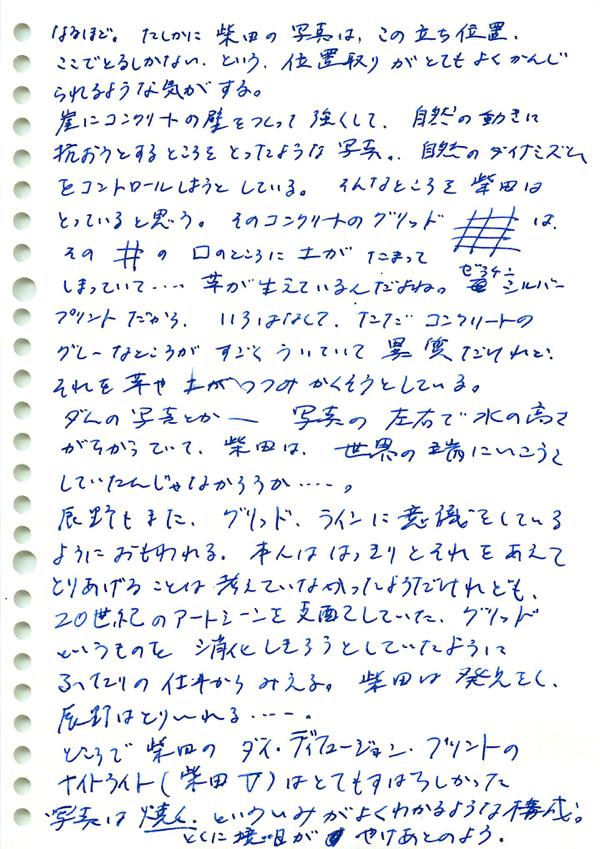 なるほど。たしかに柴田の写真は、この立ち位置、
ここでとるしかない、という、位置取りがとてもよくかんじ
られるような気がする。
崖にコンクリートの壁をつくって強くして、自然の動きに
抗おうとするところをとったような写真。、自然のダイナミズム
をコントロールしようとしている。そんなところを柴田は
とっていると思う。そのコンクリートのグリッド は、
その井の口のところに土がたまって
しまっていて‥‥草が生えているんだよね。ゼラチン シルバー
プリントだから、いろはなくて、ただコンクリートの
グレーなところがすごくういていて異質だけれど、
それを草や土がつつみかくそうとしている。
ダムの写真とか― 写真の左右で水の高さ
がちがっていて、柴田は、世界の端にいこうと
していたんじゃなかろうか‥‥。
辰野もまた、グリッド、ラインに意識をしている
ようにおもわれる。本人ははっきりとそれをあえて
とりあげることは考えていなかったようだけれども、
20世紀のアートシーンを支配していた、グリッド
というものを消化しきろうとしていたように
ふたりの仕事からみえる。柴田は発見をし、
辰野はとりいれる‥‥。
ところで柴田のダイ・ディフュージョン・プリントの
ナイトライト(柴田 V)はとてもすばらしかった
写真は焼く、といういみがよくわかるような構成。
とくに境目が やけあとのよう。